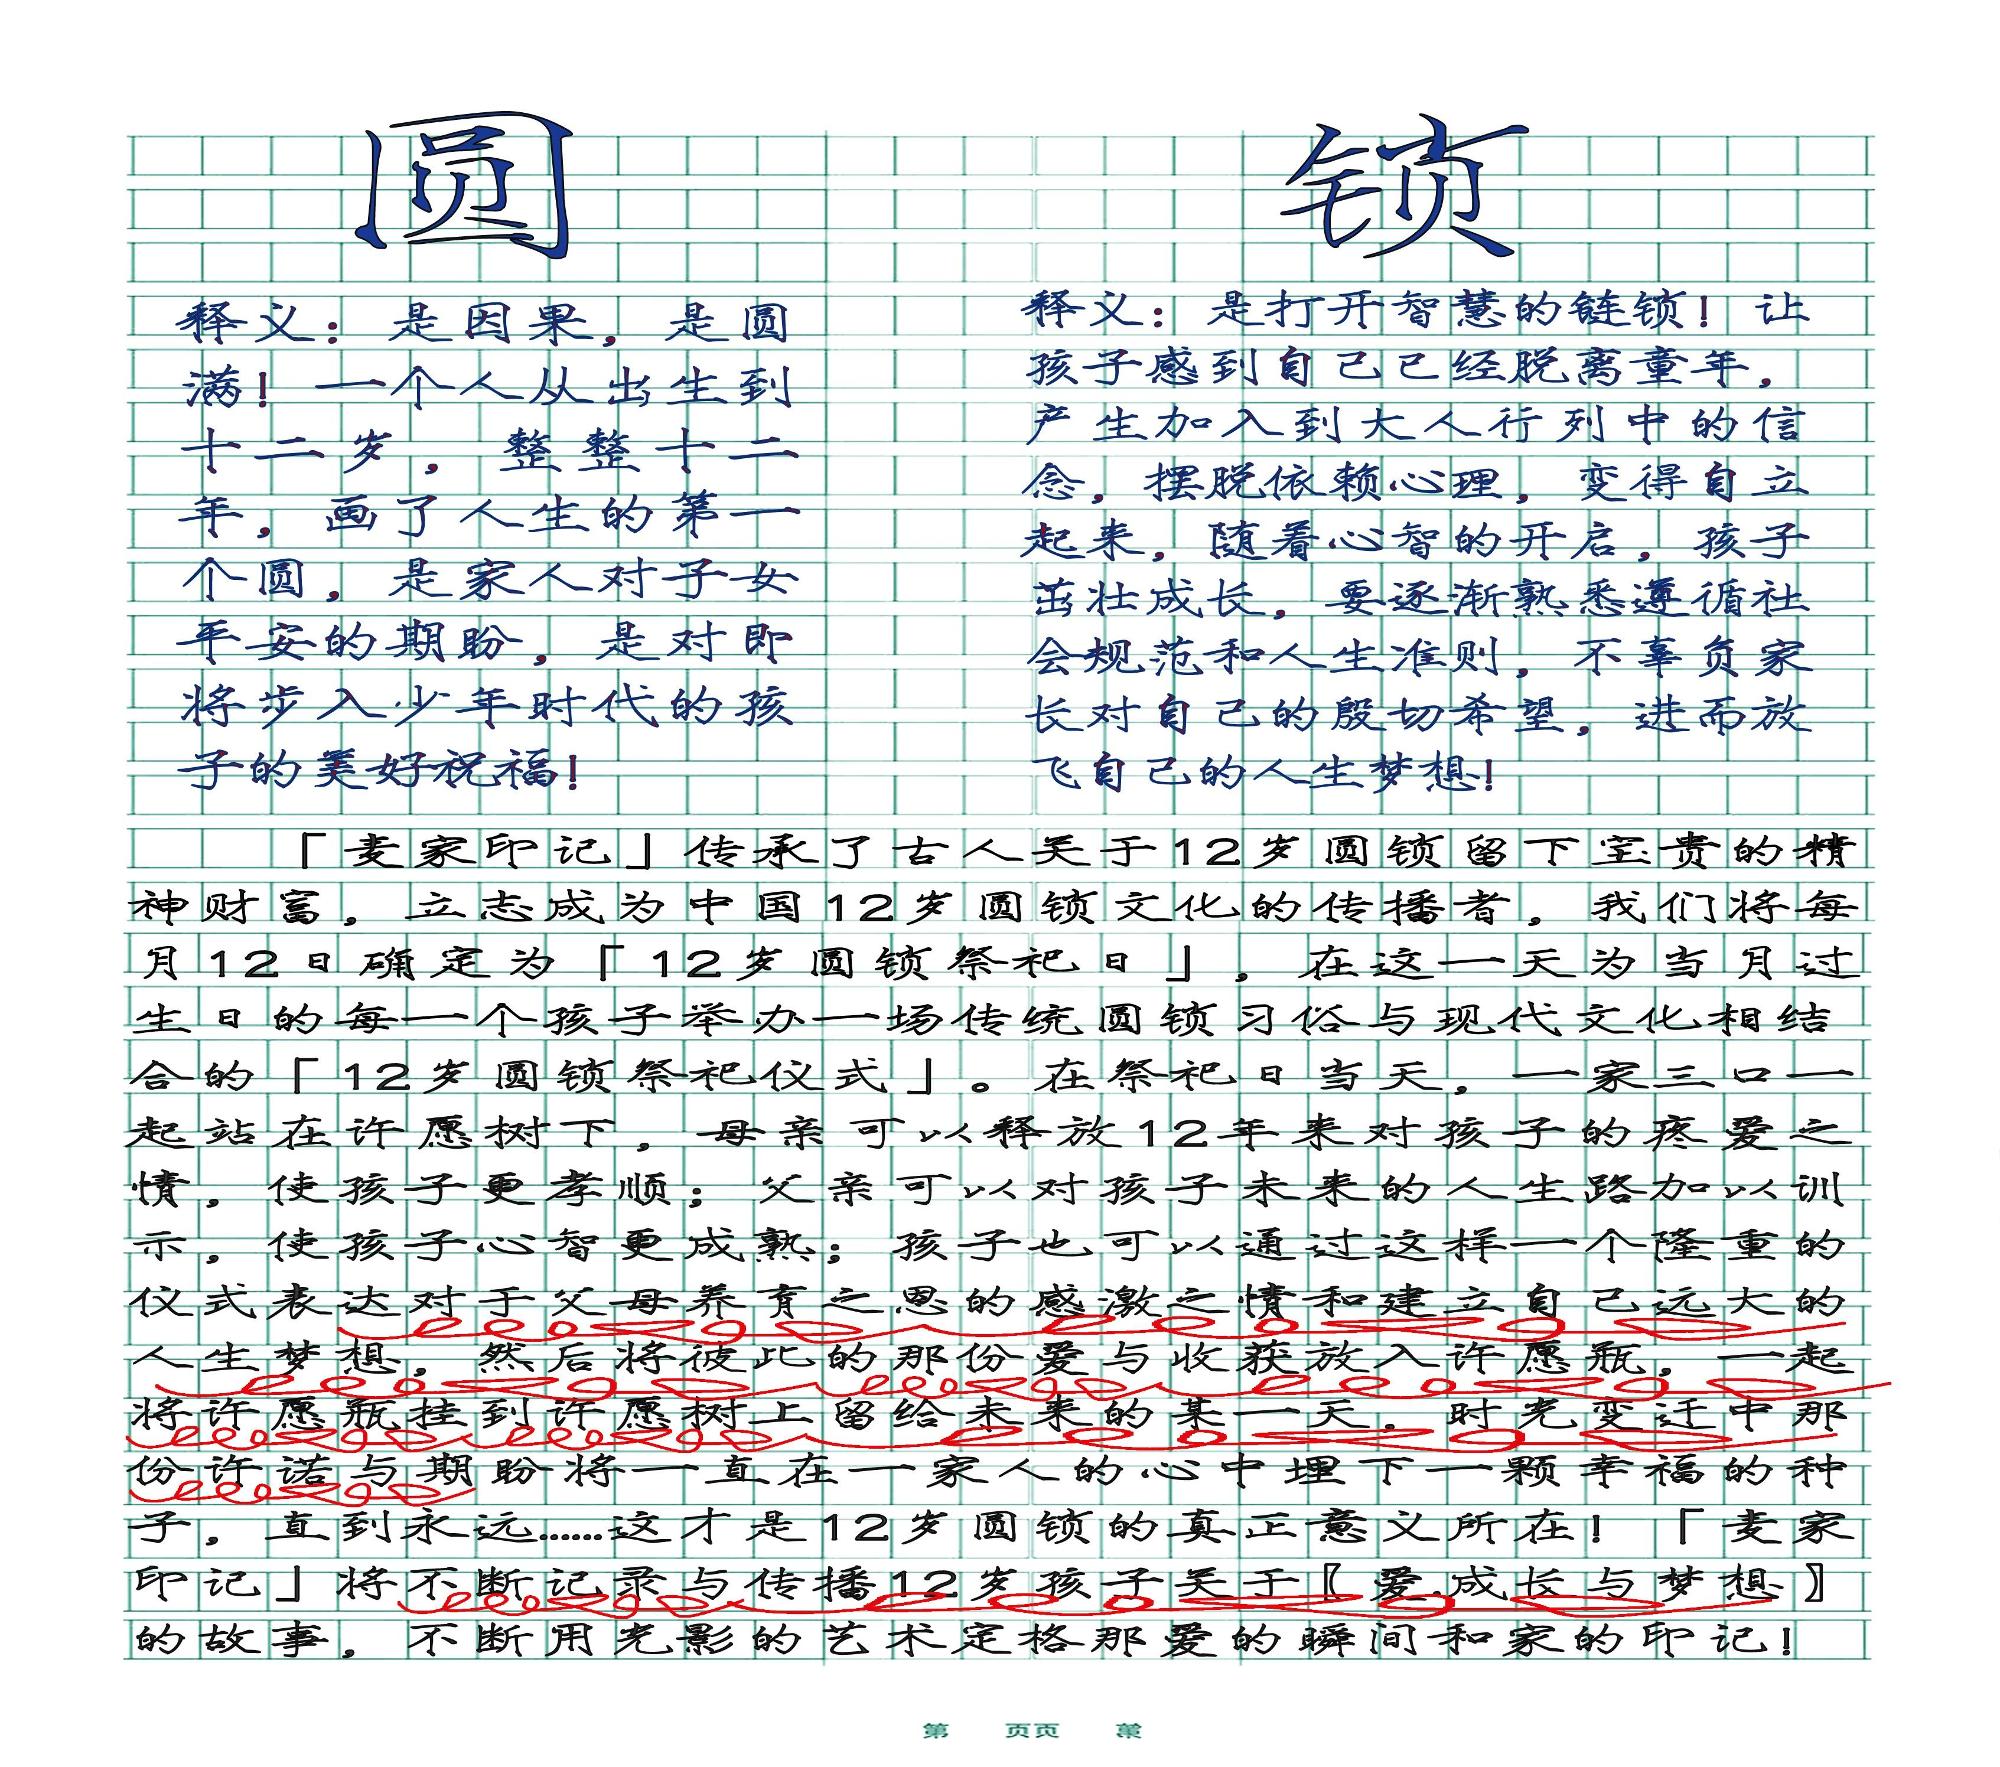 圆
释义：是因果，是圆
满！一个人从出生到
十二岁，整整十二
年，画了人生的第一
个圆，是家人对子女
平安的期盼，是对即
将步入少年时代的孩
子的美好祝福！
锁
释义：是打开智慧的链锁！让
孩子感到自己已经脱离童年，
产生加入到大人行列中的信
念，摆脱依赖心理，变得自立
起来，随着心智的开启，孩子
茁壮成长，要逐渐熟悉遵循社
会规范和人生准则，不辜负家
长对自己的殷切希望，进而放
飞自己的人生梦想！
「麦家印记」传承了古人关于12岁圆锁留下宝贵的精
神财富，立志成为中国12岁圆锁文化的传播者，我们将每
月12日确定为「12岁圆锁祭祀日」，在这一天为当月过
生日的每一个孩子举办一场传统圆锁习俗与现代文化相结
合的「12岁圆锁祭祀仪式」。在祭祀日当天，一家三口一
起站在许愿树下，母亲可以释放12年来对孩子的疼爱之
情，使孩子更孝顺；父亲可以对孩子未来的人生路加以训
示，使孩子心智更成熟；孩子也可以通过这样一个隆重的
仪式表达对于父母养育之恩的感激之情和建立自己远大的
人生梦想，然后将彼此的那份爱与收获放入许愿瓶，一起
将许愿瓶挂到许愿树上留给未来的某一天，时光变迁中那
份许诺与期盼将一直在一家人的心中埋下一颗幸福的种
子，直到永远……这才是12岁圆锁的真正意义所在！「麦家
印记」将不断记录与传播12岁孩子关于〖爱.成长与梦想〗
的故事，不断用光影的艺术定格那爱的瞬间和家的印记！
第 页页 第